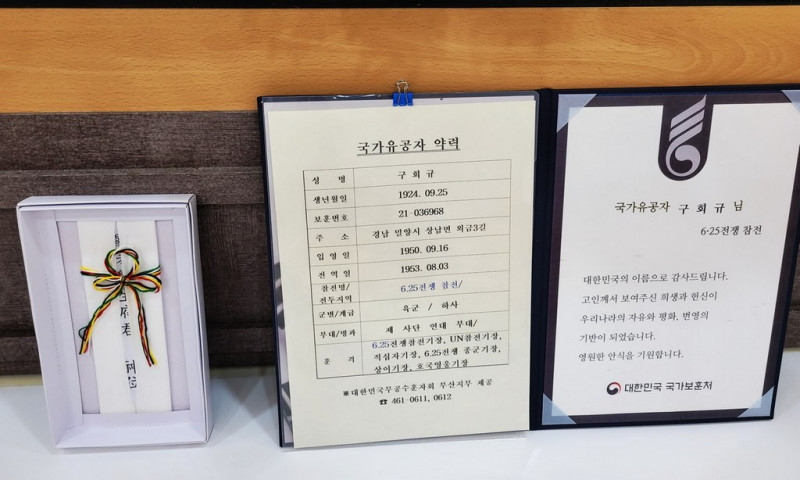 국가유공자 약력
성 명 구 회 규
생년월일 1924. 09.25
보훈번호 21-036968
주 소 경남 밀양시 상남면 외금3길
입 영 일 1950. 09.16
전 역 일 1953. 08.03
참전명/
전투지역 6.25전쟁 참전/
군별/계급 육군 / 하사
부대/병과 제 사단 연대 부대/
훈 격 6.25전쟁참전기장, UN참전기장,
적십자기장, 6.25전쟁 종군기장,
상이기장, 호국영웅기장
※대한민국무공수훈자회 부산지부 제공
☎ 461-0611, 0612
국가유공자 구 회 규 님
6·25전쟁 참전
대한민국의 이름으로 감사드립니다.
고인께서 보여주신 희생과 헌신이
우리나라의 자유와 평화, 번영의
기반이 되었습니다.
영원한 안식을 기원합니다.
대한민국 국가보훈처